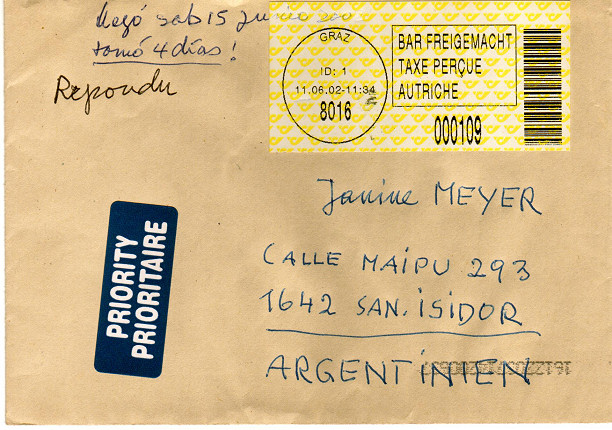 llegó sab 15 junio
tomó 4 días !
Repondu
GRAZ
ID: 1
11.06.02-11:34
8016
BAR FREIGEMACHT
TAXE PERÇUE
AUTRICHE
000109
Janine MEYER
CALLE MAIPU 293
1642 SAN. ISIDOR
ARGENTINIEN
PRIORITY
PRIORITAIRE